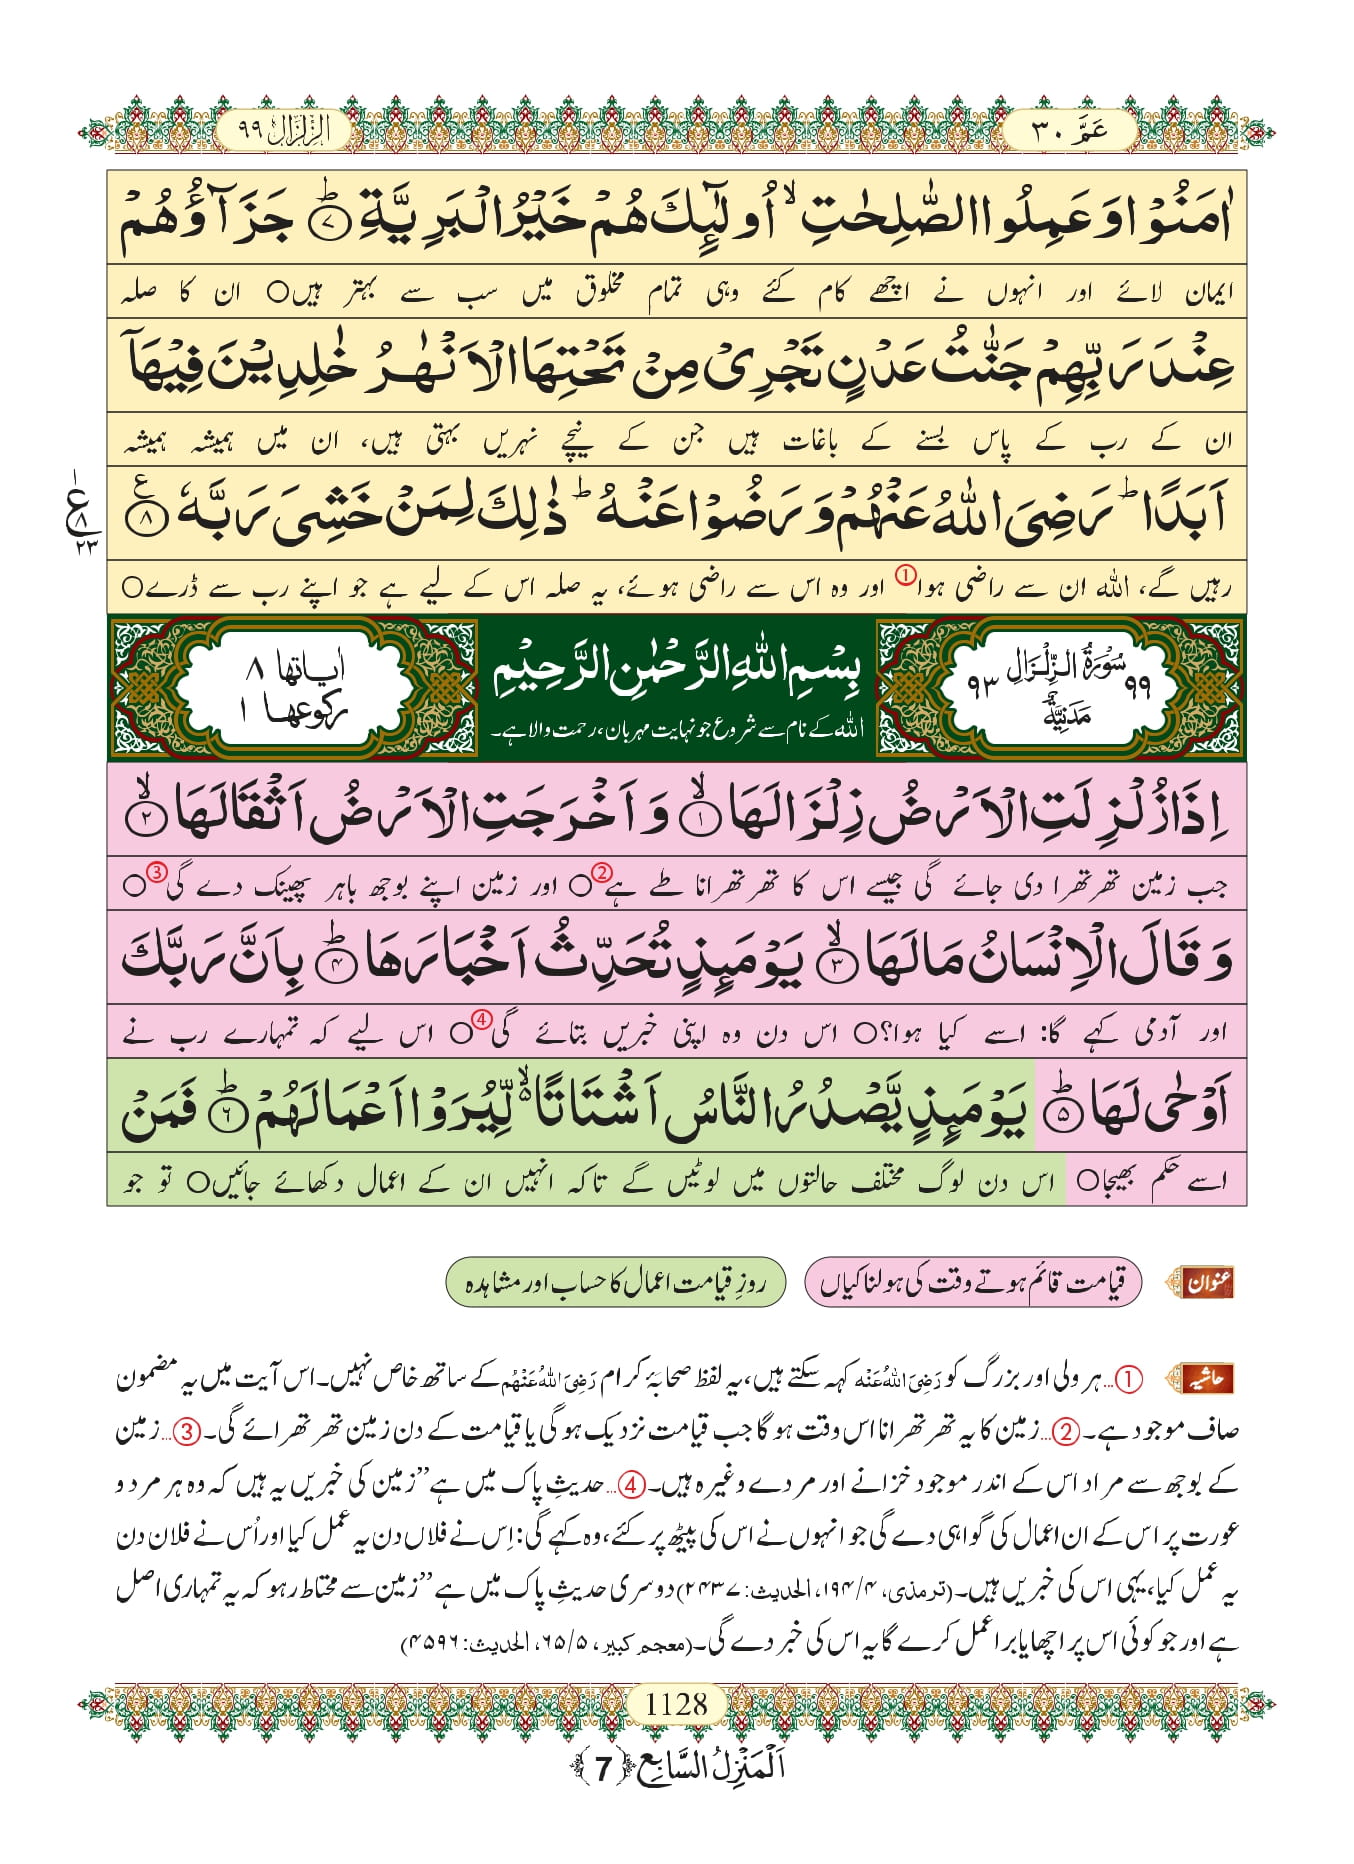 عَمَّ ٣٠
الزِّلْزَال ٩٩
اٰمَنُوْا وَعَمِلُوا الصّٰلِحٰتِ ۙ اُولٰٓئِكَ هُمْ خَیْرُ الْبَرِیَّةِ ؕ﴿۷﴾ جَزَآؤُهُمْ
ایمان لائے اور انہوں نے اچھے کام کئے وہی تمام مخلوق میں سب سے بہتر ہیں○ ان کا صلہ
عِنْدَ رَبِّهِمْ جَنّٰتُ عَدْنٍ تَجْرِیْ مِنْ تَحْتِهَا الْاَنْهٰرُ خٰلِدِیْنَ فِیْهَاۤ
ان کے رب کے پاس بسنے کے باغات ہیں جن کے نیچے نہریں بہتی ہیں، ان میں ہمیشہ ہمیشہ
اَبَدًا ؕ رَضِیَ اللّٰهُ عَنْهُمْ وَرَضُوْا عَنْهُ ؕ ذٰلِكَ لِمَنْ خَشِیَ رَبَّهٗ ﴿۸﴾ ع
ع ۱ ۸ ۲۳
رہیں گے، اللہ ان سے راضی ہوا① اور وہ اس سے راضی ہوئے، یہ صلہ اس کے لیے ہے جو اپنے رب سے ڈرے○
٩٩ سُوْرَةُ الزِّلْزَالِ مَدَنِیَّةٌ ٩٣
بِسْمِ اللّٰهِ الرَّحْمٰنِ الرَّحِیْمِ
اللہ کے نام سے شروع جو نہایت مہربان، رحمت والا ہے۔
اٰیاتها ۸
رکوعها ۱
اِذَا زُلْزِلَتِ الْاَرْضُ زِلْزَالَهَا ۙ﴿۱﴾ وَ اَخْرَجَتِ الْاَرْضُ اَثْقَالَهَا ۙ﴿۲﴾
جب زمین تھرتھرا دی جائے گی جیسے اس کا تھرتھرانا طے ہے②○ اور زمین اپنے بوجھ باہر پھینک دے گی③○
وَ قَالَ الْاِنْسَانُ مَا لَهَا ۙ﴿۳﴾ یَوْمَئِذٍ تُحَدِّثُ اَخْبَارَهَا ؕ﴿۴﴾ بِاَنَّ رَبَّكَ
اور آدمی کہے گا: اسے کیا ہوا؟○ اس دن وہ اپنی خبریں بتائے گی④○ اس لیے کہ تمہارے رب نے
اَوْحٰی لَهَا ؕ﴿۵﴾ یَوْمَئِذٍ یَّصْدُرُ النَّاسُ اَشْتَاتًا ۙ۬ لِّیُرَوْا اَعْمَالَهُمْ ؕ﴿۶﴾ فَمَنْ
اسے حکم بھیجا○ اس دن لوگ مختلف حالتوں میں لوٹیں گے تاکہ انہیں ان کے اعمال دکھائے جائیں○ تو جو
عنوان قیامت قائم ہوتے وقت کی ہولناکیاں روزِ قیامت اعمال کا حساب اور مشاہدہ
حاشیہ ①...ہر ولی اور بزرگ کو رَضِیَ اللّٰهُ عَنْه کہہ سکتے ہیں، یہ لفظ صحابۂ کرام رَضِیَ اللّٰهُ عَنْهُم کے ساتھ خاص نہیں۔ اس آیت میں یہ مضمون
صاف موجود ہے۔ ②...زمین کا یہ تھرتھرانا اس وقت ہو گا جب قیامت نزدیک ہو گی یا قیامت کے دن زمین تھرتھرائے گی۔ ③...زمین
کے بوجھ سے مراد اس کے اندر موجود خزانے اور مردے وغیرہ ہیں۔ ④...حدیثِ پاک میں ہے ”زمین کی خبریں یہ ہیں کہ وہ ہر مرد و
عورت پر اس کے ان اعمال کی گواہی دے گی جو انہوں نے اس کی پیٹھ پر کئے، وہ کہے گی: اِس نے فلاں دن یہ عمل کیا اور اُس نے فلان دن
یہ عمل کیا، یہی اس کی خبریں ہیں۔ (ترمذی، ۴/۱۹۴، الحدیث: ۲۴۳۷) دوسری حدیثِ پاک میں ہے ”زمین سے محتاط رہو کہ یہ تمہاری اصل
ہے اور جو کوئی اس پر اچھا یا برا عمل کرے گا یہ اس کی خبر دے گی۔ (معجم کبیر، ۵/۶۵، الحدیث: ۴۵۹۶)
1128
اَلْمَنْزِلُ السَّابِع ﴿7﴾